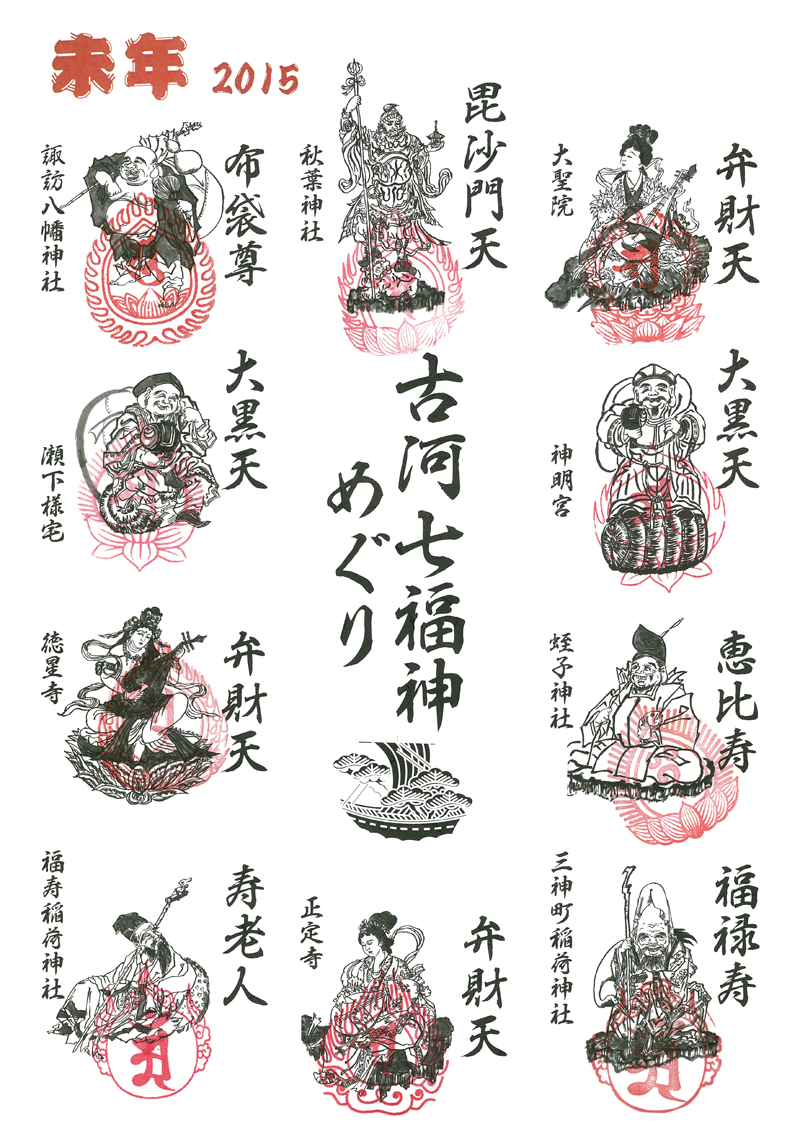 未年 2015
弁財天
大聖院
毘沙門天
秋葉神社
布袋尊
諏訪八幡神社
大黒天
神明宮
古河七福神
めぐり
大黒天
瀬下様宅
恵比寿
蛭子神社
弁財天
徳星寺
福禄寿
三神町稲荷神社
弁財天
正定寺
寿老人
福寿稲荷神社